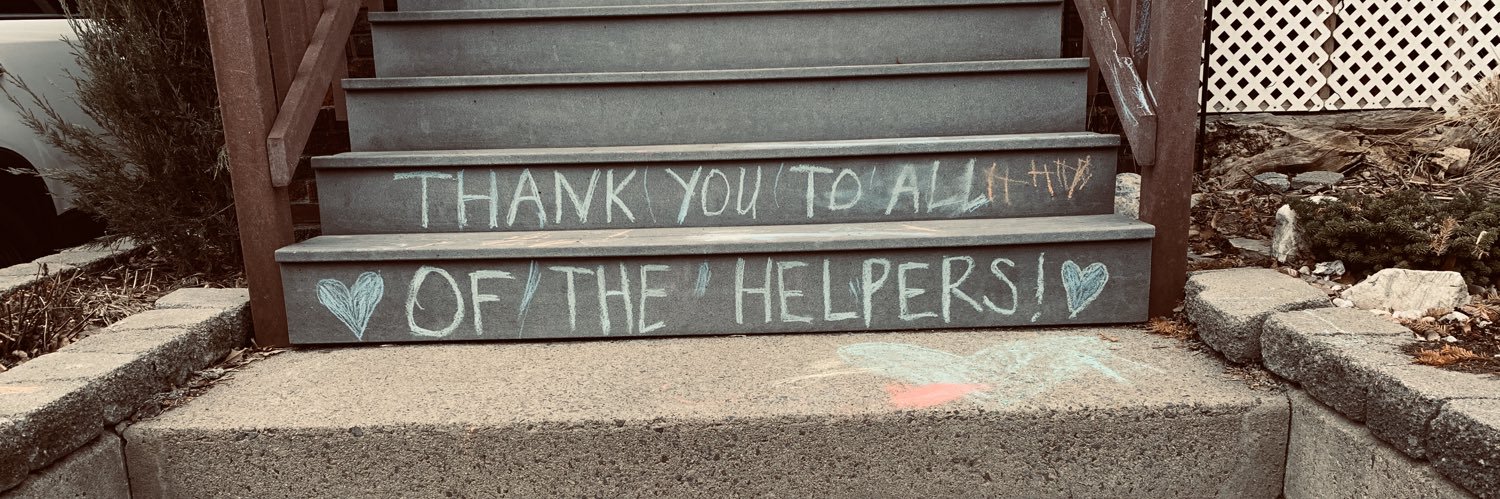 THANK YOU TO ALL
OF THE HELPERS!